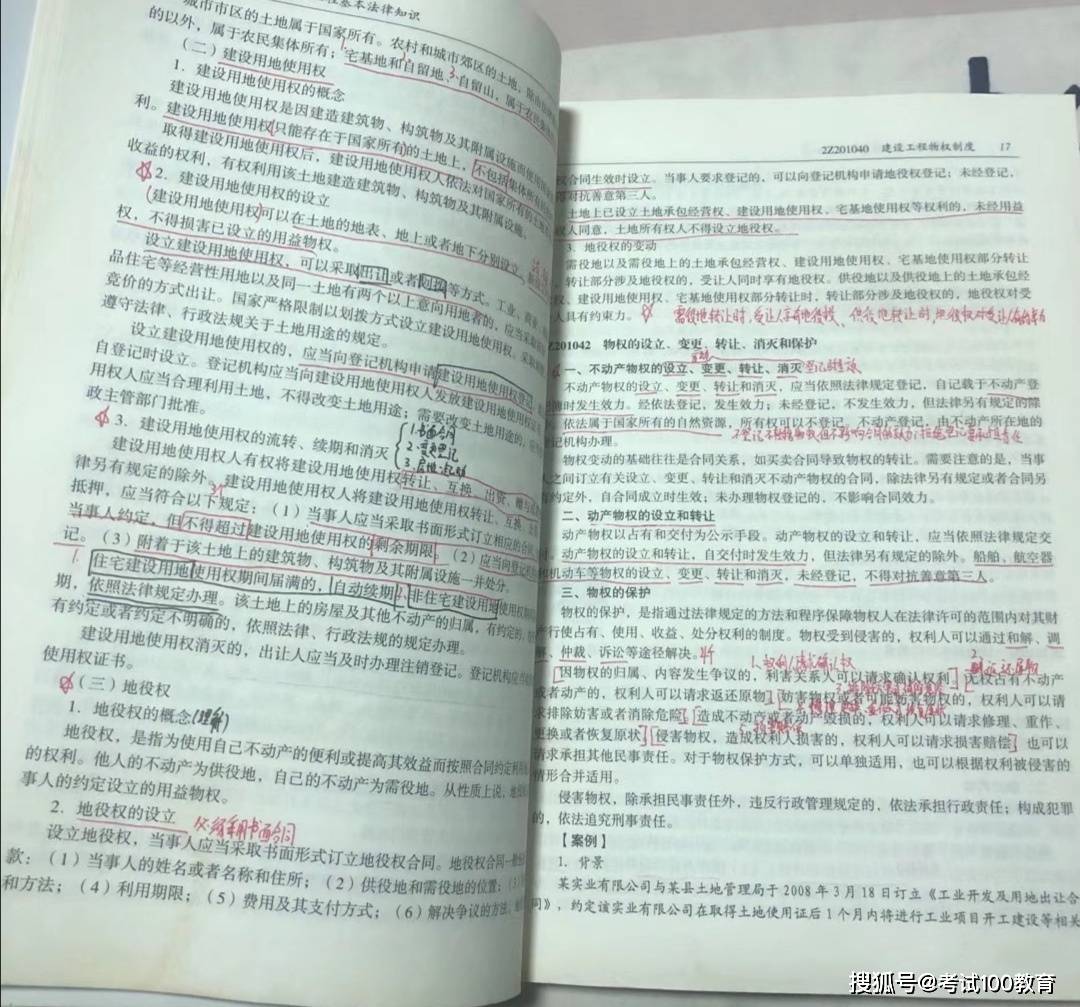 基本法律知识
城市市区的土地属于国家所有。农村和城市郊区的土地，除由
的以外，属于农民集体所有；宅基地和自留地、自留山，属于农民集
（二）建设用地使用权
1．建设用地使用权的概念
建设用地使用权是因建造建筑物、构筑物及其附属设施而使用国
利。建设用地使用权只能存在于国家所有的土地上，不包括集体所有
取得建设用地使用权后，建设用地使用权人依法对国家所有的土地
收益的权利，有权利用该土地建造建筑物、构筑物及其附属设施。
2．建设用地使用权的设立
建设用地使用权可以在土地的地表、地上或者地下分别设立。
权，不得损害已设立的用益物权。
设立建设用地使用权，可以采取出让或者划拨等方式。工业、商业、
品住宅等经营性用地以及同一土地有两个以上意向用地者的，应当采取
竞价的方式出让。国家严格限制以划拨方式设立建设用地使用权。采取
遵守法律、行政法规关于土地用途的规定。
设立建设用地使用权的，应当向登记机构申请建设用地使用权登记
自登记时设立。登记机构应当向建设用地使用权人发放建设用地使用权证
用权人应当合理利用土地，不得改变土地用途；需要改变土地用途的，
政主管部门批准。
3．建设用地使用权的流转、续期和消灭
1.书面合同
2.变更登记
建设用地使用权人有权将建设用地使用权转让、互换、出资、赠与或
律另有规定的除外。建设用地使用权人将建设用地使用权转让、互换、
抵押，应当符合以下规定：（1）当事人应当采取书面形式订立相应的合同
当事人约定，但不得超过建设用地使用权的剩余期限。（2）应当向登记
记。（3）附着于该土地上的建筑物、构筑物及其附属设施一并处分。
住宅建设用地使用权期间届满的，自动续期。非住宅建设用地使用权
期，依照法律规定办理。该土地上的房屋及其他不动产的归属，有约定的，
有约定或者约定不明确的，依照法律、行政法规的规定办理。
建设用地使用权消灭的，出让人应当及时办理注销登记。登记机构应
使用权证书。
（三）地役权
1．地役权的概念（理解）
地役权，是指为使用自己不动产的便利或提高其效益而按照合同约定利用
的权利。他人的不动产为供役地，自己的不动产为需役地。从性质上说，地役
事人的约定设立的用益物权。
2．地役权的设立 必须采用书面合同
设立地役权，当事人应当采取书面形式订立地役权合同。地役权合同一般
款：（1）当事人的姓名或者名称和住所；（2）供役地和需役地的位置；
和方法；（4）利用期限；（5）费用及其支付方式；（6）解决争议的方法。
2Z201040 建设工程物权制度 17
权合同生效时设立。当事人要求登记的，可以向登记机构申请地役权登记；未经登记，
对抗善意第三人。
土地上已设立土地承包经营权、建设用地使用权、宅基地使用权等权利的，未经用益
权人同意，土地所有权人不得设立地役权。
3．地役权的变动
需役地以及需役地上的土地承包经营权、建设用地使用权、宅基地使用权部分转让
转让部分涉及地役权的，受让人同时享有地役权。供役地以及供役地上的土地承包经
、建设用地使用权、宅基地使用权部分转让时，转让部分涉及地役权的，地役权对受
人具有约束力。
需役地转让时，受让人享有地役权，供役地转让时，地役权对受让人有约束力
2Z201042 物权的设立、变更、转让、消灭和保护
一、不动产物权的设立、变更、转让、消灭
不动产物权的设立、变更、转让和消灭，应当依照法律规定登记，自记载于不动产登
簿时发生效力。经依法登记，发生效力；未经登记，不发生效力，但法律另有规定的除
依法属于国家所有的自然资源，所有权可以不登记，不动产登记，由不动产所在地的
记机构办理。
物权变动的基础往往是合同关系，如买卖合同导致物权的转让。需要注意的是，当事
人之间订立有关设立、变更、转让和消灭不动产物权的合同，除法律另有规定或者合同另
有约定外，自合同成立时生效；未办理物权登记的，不影响合同效力。
二、动产物权的设立和转让
动产物权以占有和交付为公示手段。动产物权的设立和转让，应当依照法律规定交
动产物权的设立和转让，自交付时发生效力，但法律另有规定的除外。船舶、航空器
机动车等物权的设立、变更、转让和消灭，未经登记，不得对抗善意第三人。
三、物权的保护
物权的保护，是指通过法律规定的方法和程序保障物权人在法律许可的范围内对其财
产行使占有、使用、收益、处分权利的制度。物权受到侵害的，权利人可以通过和解、调
解、仲裁、诉讼等途径解决。
因物权的归属、内容发生争议的，利害关系人可以请求确认权利。无权占有不动产
或者动产的，权利人可以请求返还原物。妨害物权或者可能妨害物权的，权利人可以请
求排除妨害或者消除危险。造成不动产或者动产毁损的，权利人可以请求修理、重作、
更换或者恢复原状。侵害物权，造成权利人损害的，权利人可以请求损害赔偿，也可以
请求承担其他民事责任。对于物权保护方式，可以单独适用，也可以根据权利被侵害的
情形合并适用。
侵害物权，除承担民事责任外，违反行政管理规定的，依法承担行政责任；构成犯罪
的，依法追究刑事责任。
【案例】
1．背景
某实业有限公司与某县土地管理局于 2008 年 3 月 18 日订立《工业开发及用地出让合
同》，约定该实业有限公司在取得土地使用证后 1 个月内将进行工业项目开工建设等相关
搜狐号@考试100教育